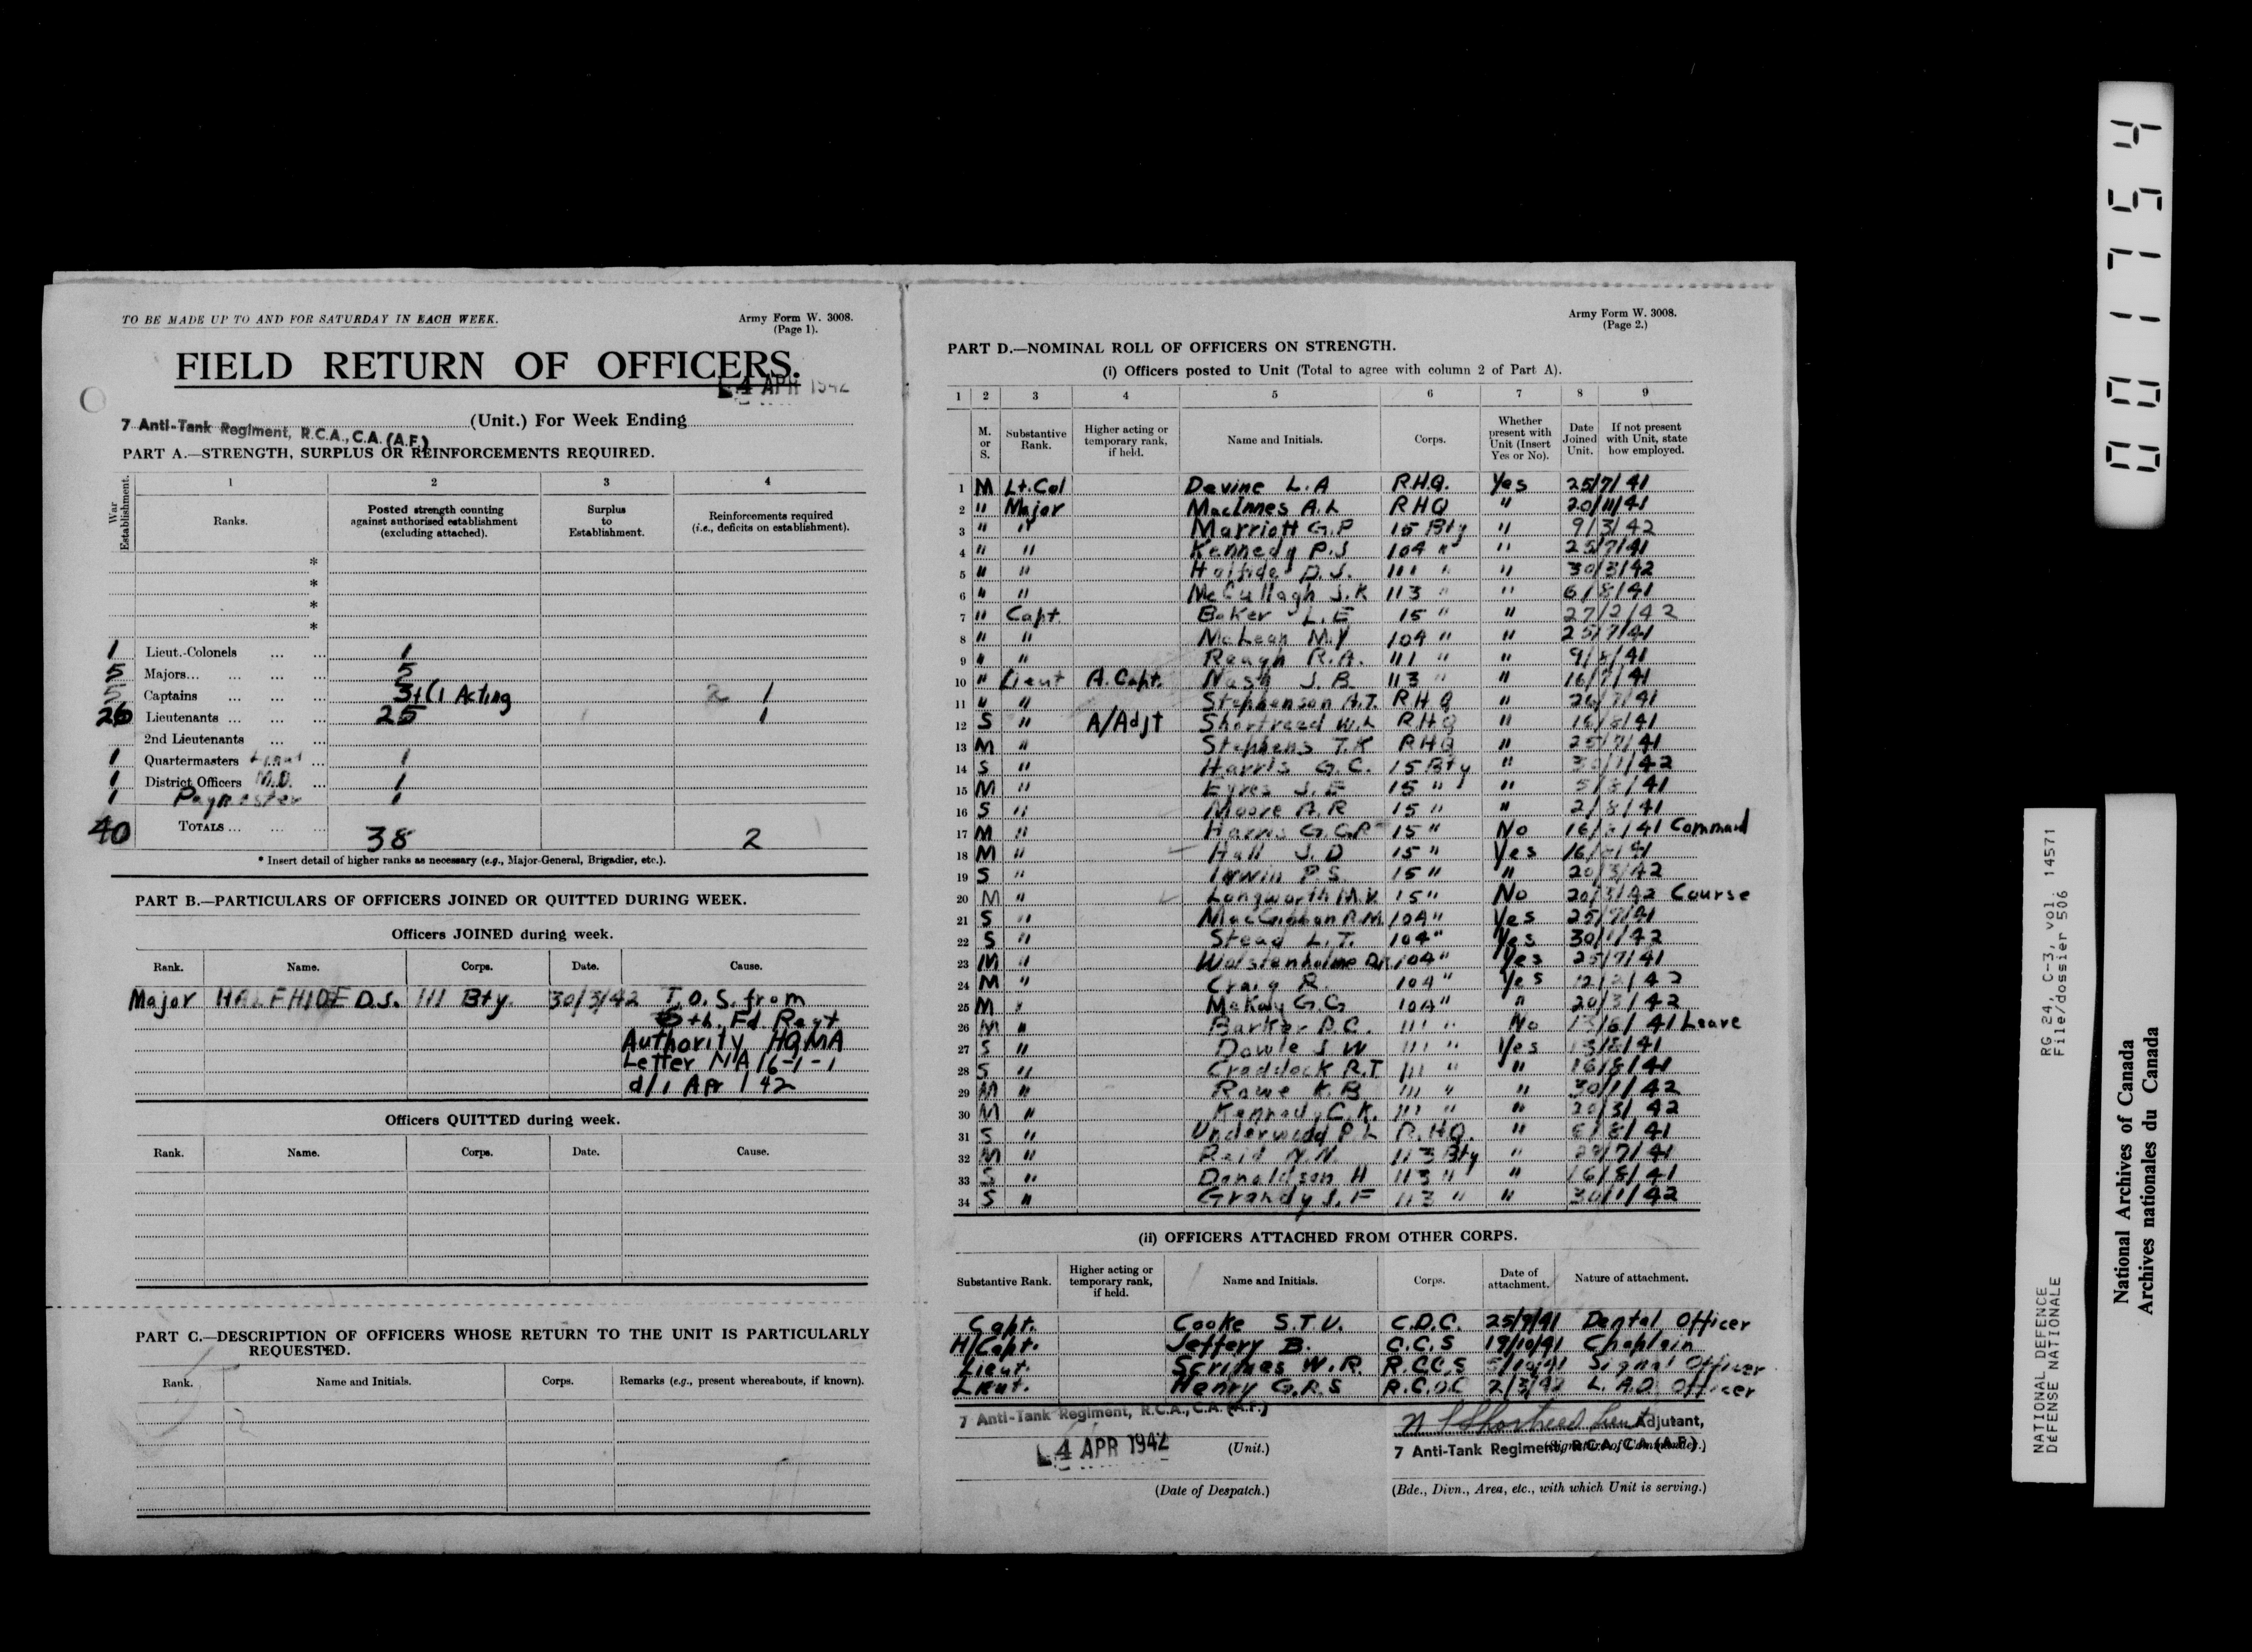 TO BE MADE UP TO AND FOR SATURDAY IN EACH WEEK.
Army Form W. 3008.
(Page 1).
FIELD RETURN OF OFFICERS.
4 APR 1942
7 Anti-Tank Regiment, R.C.A., C.A. (A.F.) (Unit.) For Week Ending
PART A.—STRENGTH, SURPLUS OR REINFORCEMENTS REQUIRED.
War Establishment.
1 2 3 4
Ranks.
Posted strength counting against authorised establishment (excluding attached).
Surplus to Establishment.
Reinforcements required (i.e., deficits on establishment).
*
*
*
*
1 Lieut.-Colonels ... ... 1
5 Majors... ... ... ... 5
5 Captains ... ... ... 3+(1 Acting 1
26 Lieutenants ... ... ... 25 1
2nd Lieutenants ... ...
1 Quartermasters ... 1
1 District Officers M.O. ... 1
1 Paymaster 1
40 TOTALS ... ... ... 38 2
* Insert detail of higher ranks as necessary (e.g., Major-General, Brigadier, etc.).
PART B.—PARTICULARS OF OFFICERS JOINED OR QUITTED DURING WEEK.
Officers JOINED during week.
Rank. Name. Corps. Date. Cause.
Major HALFHIDE D.S. 111 Bty. 30/3/42 T.O.S. from
th. Fd. Regt
Authority HQMA
Letter NA 16-1-1
d/1 Apr / 42
Officers QUITTED during week.
Rank. Name. Corps. Date. Cause.
PART C.—DESCRIPTION OF OFFICERS WHOSE RETURN TO THE UNIT IS PARTICULARLY
REQUESTED.
Rank. Name and Initials. Corps. Remarks (e.g., present whereabouts, if known).
Army Form W. 3008.
(Page 2.)
PART D.—NOMINAL ROLL OF OFFICERS ON STRENGTH.
(i) Officers posted to Unit (Total to agree with column 2 of Part A).
1 2 3 4 5 6 7 8 9
M. or S.
Substantive Rank.
Higher acting or temporary rank, if held.
Name and Initials.
Corps.
Whether present with Unit (Insert Yes or No).
Date Joined Unit.
If not present with Unit, state how employed.
1 M Lt.Col Devine L.A R.H.Q. Yes 25/7/41
2 " Major MacInnes A.L RHQ " 20/11/41
3 " " Marriott G.P 15 Bty " 9/3/42
4 " " Kennedy P.S 104 " " 25/7/41
5 " " Halfide D.S. 111 " " 30/3/42
6 " " McCullagh J.K 113 " " 6/8/41
7 " Capt Baker L.E 15 " " 27/2/42
8 " " McLean M.Y 104 " " 25/7/41
9 " " Reagh R.A. 111 " " 9/8/41
10 " Lieut A.Capt. Nash J.B 113 " " 16/7/41
11 " " Stephenson A.T. RHQ " 26/7/41
12 S " A/Adjt Shortreed W.L RHQ " 16/8/41
13 M " Stephens T.K RHQ " 25/7/41
14 S " Harris G.C. 15 Bty " 30/1/42
15 M " Eyres J.E 15 " " 5/8/41
16 S " Moore A.R 15 " " 2/8/41
17 M " Harris G.G.R 15 " No 16/ /41 Command
18 M " Hall J.D 15 " Yes 16/ /41
19 S " Irwin P.S. 15 " " 20/3/42
20 M " Longworth M.V. 15 " No 20/3/42 Course
21 S " MacGibbon R.M. 104 " Yes 25/7/41
22 S " Stead L.T. 104 " Yes 30/1/42
23 M " Wolstenholme 104 " Yes 25/7/41
24 M " Craig R. 104 " Yes 12/2/42
25 M " McKay G.G 104 " " 20/3/42
26 M " Barker D.C. 111 " No 13/8/41 Leave
27 S " Dowle S W 111 " Yes 13/8/41
28 S " Craddock R.T 111 " " 16/8/41
29 M " Rowe K.B 111 " " 30/1/42
30 M " Kennedy C.K. 111 " " 20/3/42
31 S " Underwood P L R.HQ. " 6/8/41
32 M " Reid N.N. 113 Bty " 28/7/41
33 S " Donaldson H 113 " " 16/8/41
34 S " Grandy J.F 113 " " 30/1/42
(ii) OFFICERS ATTACHED FROM OTHER CORPS.
Substantive Rank. Higher acting or temporary rank, if held. Name and Initials. Corps. Date of attachment. Nature of attachment.
Capt. Cooke S.T.V. C.D.C. 25/9/41 Dental Officer
H/Capt. Jeffery B. C.C.S 19/10/41 Chaplain
Lieut. Scrimes W.R. R.C.C.S 5/10/41 Signal Officer
Lieut. Henry G.R.S R.C.O.C 2/3/42 L.A.D. Officer
7 Anti-Tank Regiment, R.C.A., C.A. (A.F.)
Shortreed Lieut Adjutant,
4 APR 1942 (Unit.)
7 Anti-Tank Regiment, R.C.A., C.A. (A.F.) (Signature of Commander.)
(Date of Despatch.)
(Bde., Divn., Area, etc., with which Unit is serving.)
001754
RG 24, C-3, vol. 14571
File/dossier 506
NATIONAL DEFENCE
DÉFENSE NATIONALE
National Archives of Canada
Archives nationales du Canada